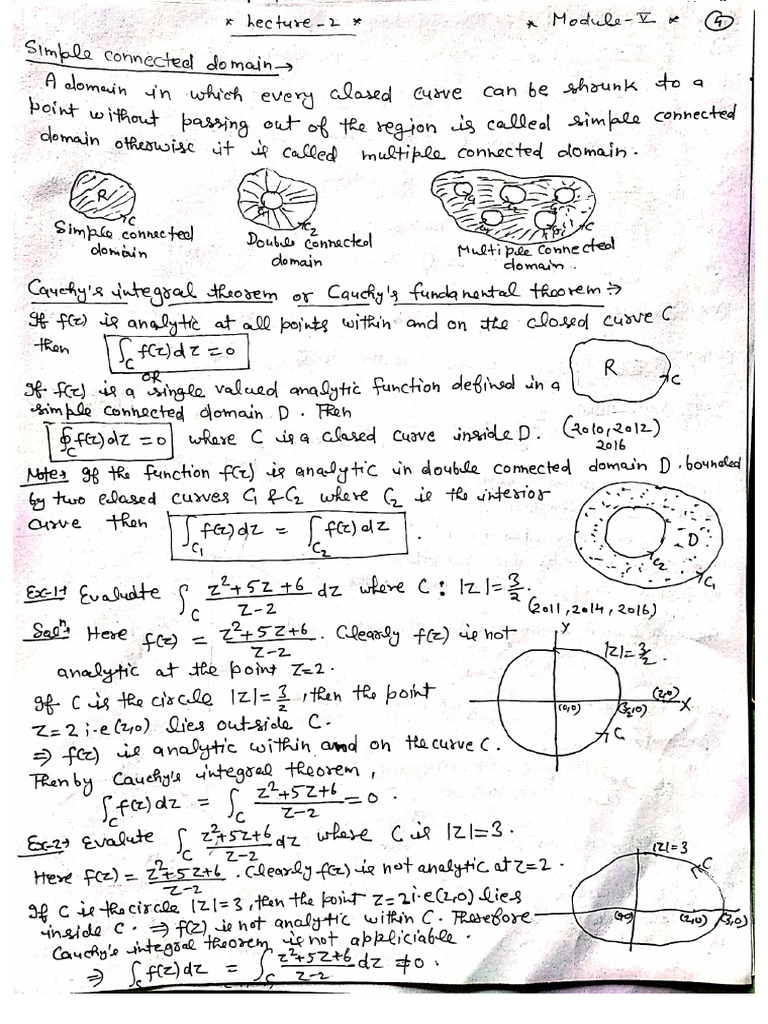 * Lecture-2 *
* Module-V *
4
Simple connected domain→
A domain in which every closed curve can be shrunk to a
point without passing out of the region is called simple connected
domain otherwise it is called multiple connected domain.
R
C
C1
C2
C
Simple connected
domain
Double connected
domain
Multiple connected
domain..
Cauchy's integral theorem or Cauchy's fundamental theorem:→
If f(z) is analytic at all points within and on the closed curve C
then ∫_C f(z)dz = 0
R
C
or
If f(z) is a single valued analytic function defined in a
simple connected domain D. Then
∮_C f(z)dz = 0 where C is a closed curve inside D. (2010, 2012)
2016
Note→ If the function f(z) is analytic in double connected domain D. bounded
by two closed curves C1 & C2 where C2 is the interior
curve then ∫_C1 f(z)dz = ∫_C2 f(z)dz .
D
C2
C1
Ex-1→ Evaluate ∫_C (z²+5z+6)/(z-2) dz where C: |z|=3/2.
(2011, 2014, 2016)
Solⁿ→ Here f(z) = (z²+5z+6)/(z-2). Clearly f(z) is not
analytic at the point z=2.
Y
|z|=3/2.
(0,0)
(3/2,0)
(2,0)
X
C
If C is the circle |z|=3/2, then the point
z=2 i.e (2,0) lies outside C.
⇒ f(z) is analytic within and on the curve C.
Then by Cauchy's integral theorem,
∫_C f(z)dz = ∫_C (z²+5z+6)/(z-2) = 0.
Ex-2→ Evalute ∫_C (z²+5z+6)/(z-2) dz where C is |z|=3.
Here f(z) = (z²+5z+6)/(z-2). Clearly f(z) is not analytic at z=2.
|z|=3
C
(2,0)
(3,0)
If C is the circle |z|=3, then the point z=2 i.e (2,0) lies
inside C. ⇒ f(z) is not analytic within C. Therefore
Cauchy's integral theorem is not appliciable.
⇒ ∫_C f(z)dz = ∫_C (z²+5z+6)/(z-2) dz ≠ 0.